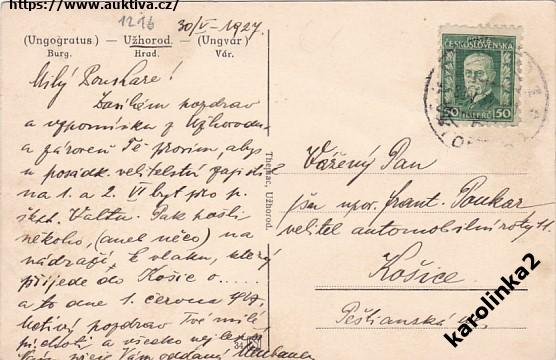 https://www.auktiva.cz/
1216
30/V-1927.
(Ungogratus) — Užhorod. — (Ungvár)
Burg. Hrad. Vár.
Milý Pouskare!
Zasílám pozdrav
a vzpomínku z Užhorodu
a zároveň Tě prosím, abys
u posádk. velitelství zajistil
na 1. a 2. VI byt pro p.
škpt. Pak pošli
někoho, (aneb něco) na
nádraží k vlaku, který
přijede do Košic o.......
a to dne 1. června
pozdrav Tvé milé
a všecko nejlepší
Vám oddaný
ČESKOSLOVENSKÁ
50 HALÉŘŮ 50
Vážený Pan
frant. Pouskar
velitel automobilní roty 11.
Košice
Pešťanská
Užhorod.
34
karolinka2